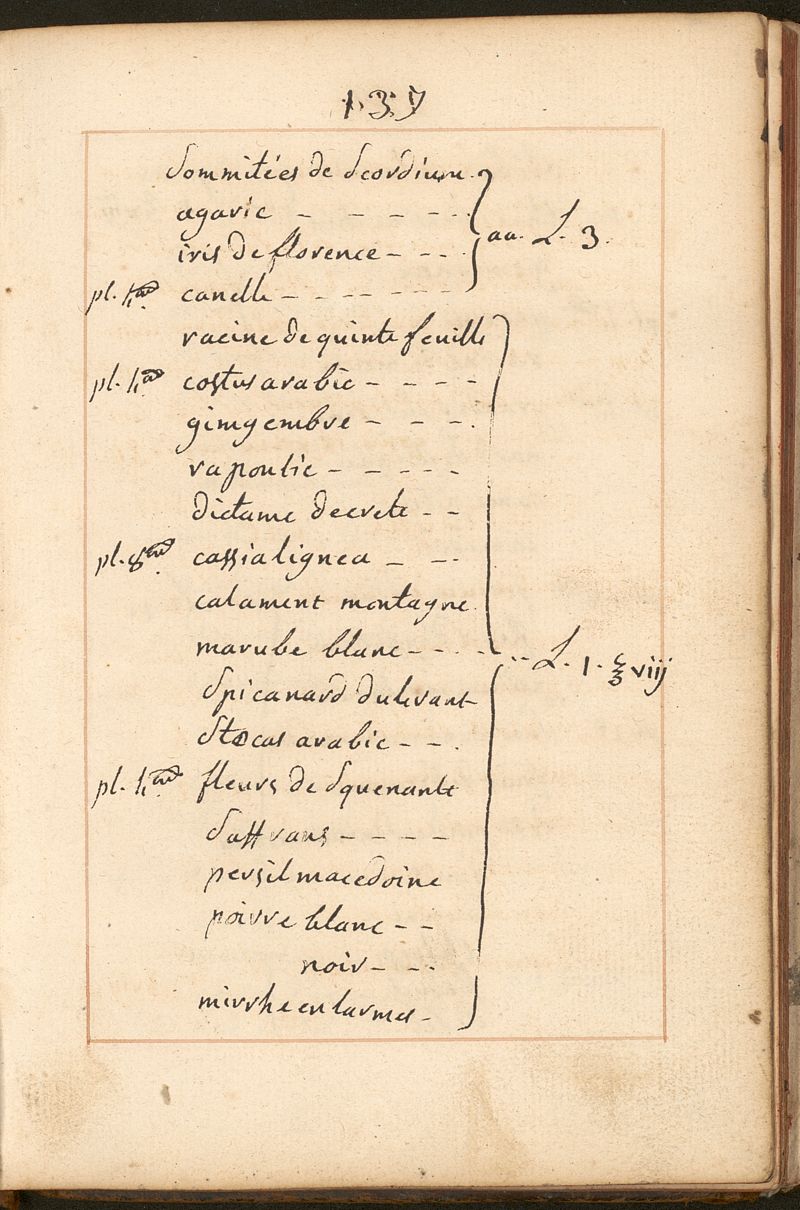 137
Sommitées de Scordium.
agaric - - - - - .
iris de florence - - - . aa. L. 3.
pl. canelle - - - - - - -
racine de quinte feuille
pl. costus arabic - - - -
gimgembre - - - .
rapontic - - - - -
dictame decrete - -
pl. cassia lignea - - .
calament montagne.
marube blanc - - . - . . L. 1. ℥ viij
Spicanard du levant
Stœcas arabic - - .
pl. fleurs de Squenante
Saffrans - - - -
persil macedoine
poivre blanc - -
noir - - .
mirrhe en larmes -